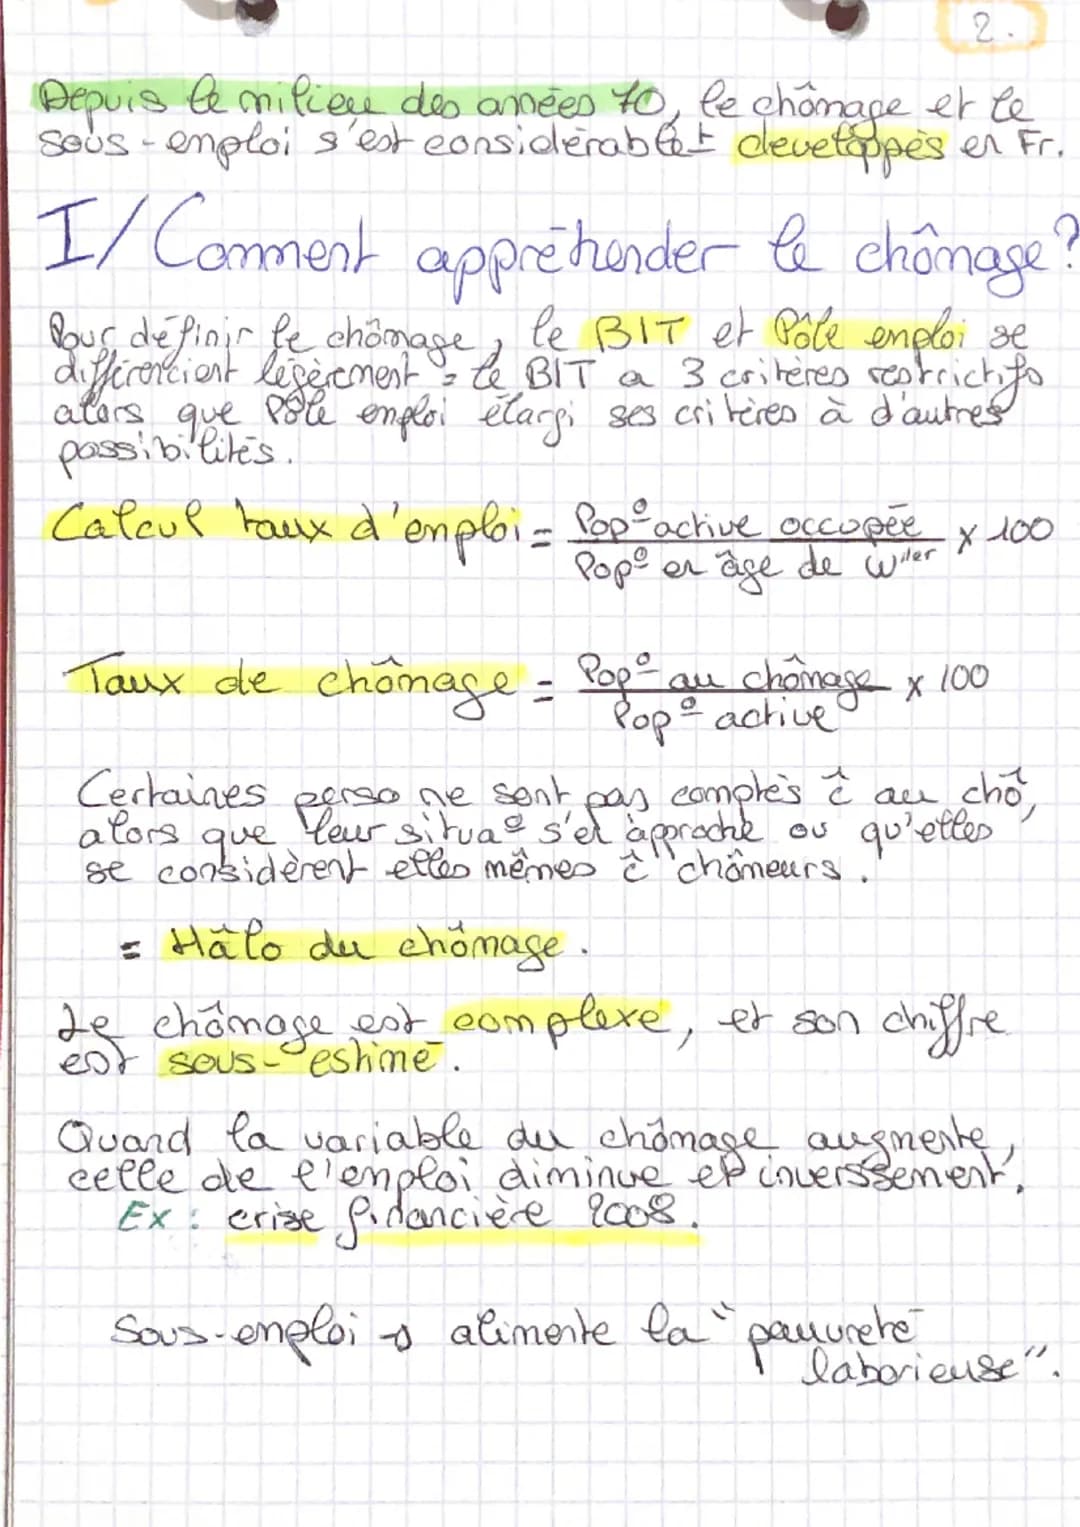 2.
Depuis le milieu des années 70, le chômage et le
sous-emploi s'est considérablt developpés en Fr.
I/ Comment appréhender le chômage?
Pour définir le chômage, le BIT et Pôle emploi se
différencient légèrement = le BIT a 3 critères restrictifs
alors que Pôle emploi élargi ses critères à d'autres
possibilités.
Calcul taux d'emploi = Pop° active occupée x 100
Pop° en âge de wiler
Taux de chômage = Pop° au chômage x 100
Pop° active
Certaines perso ne sont pas comptés ĉ au chô,
alors que leur situa° s'en approche ou qu'elles
se considèrent elles mêmes ĉ chômeurs.
= Hâlo du chômage.
Le chômage est complexe, et son chiffre
est sous-estimé.
Quand la variable du chômage augmente,
celle de l'emploi diminue et inverssement.
Ex : crise financière 2008.
Sous-emploi → alimente la "pauvreté
laborieuse".